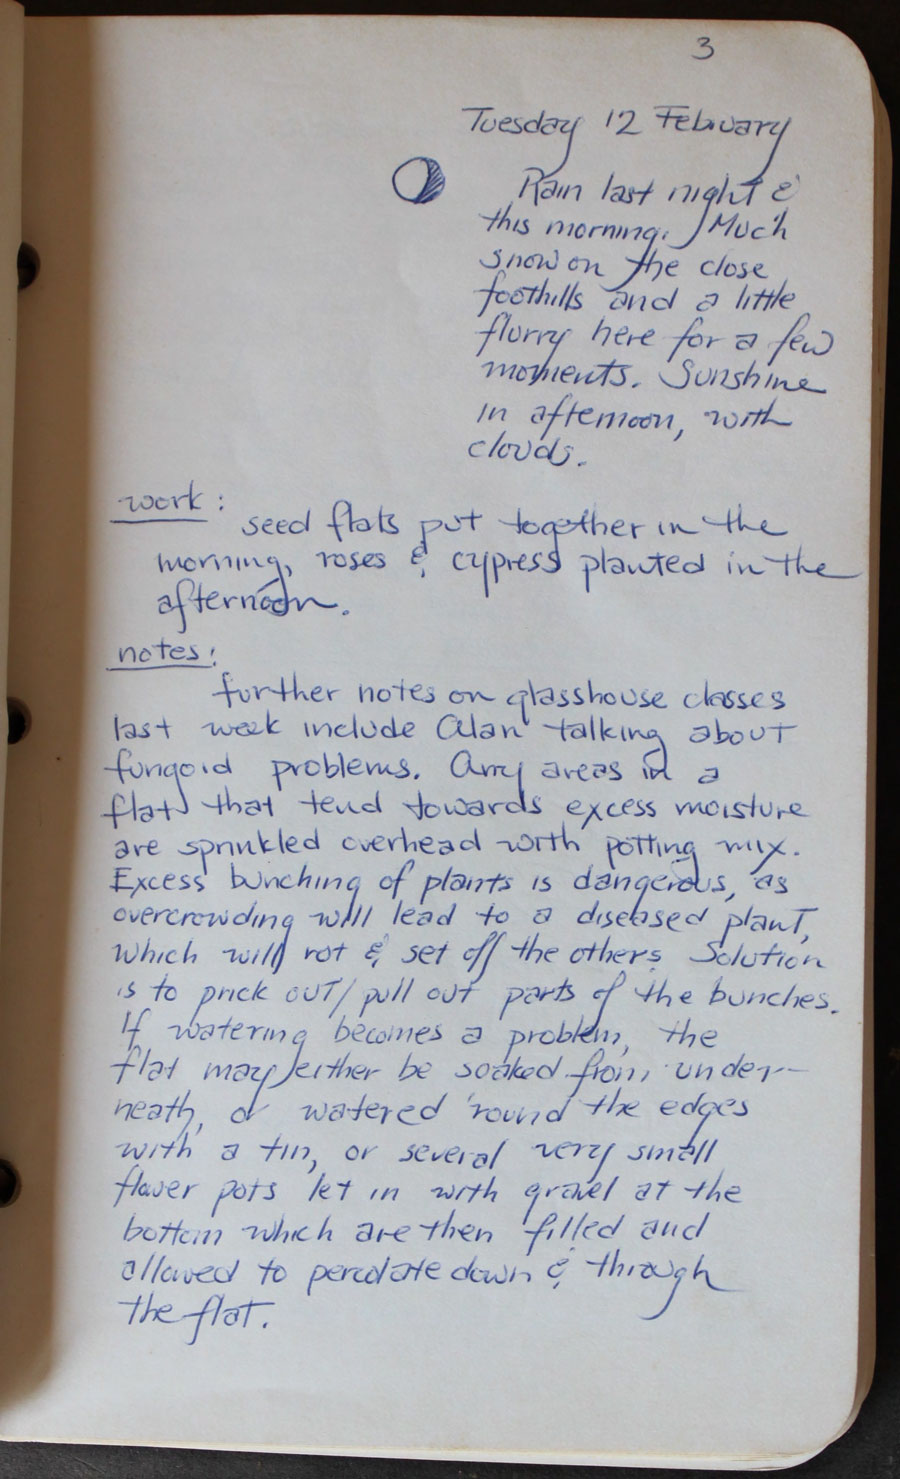 3
Tuesday 12 February
Rain last night &
this morning. Much
snow on the close
foothills and a little
flurry here for a few
moments. Sunshine
in afternoon, with
clouds.
work:
seed flats put together in the
morning, roses & cypress planted in the
afternoon.
notes:
further notes on glasshouse classes
last week include Alan talking about
fungoid problems. Any areas in a
flat that tend towards excess moisture
are sprinkled overhead with potting mix.
Excess bunching of plants is dangerous, as
overcrowding will lead to a diseased plant,
which will rot & set off the others. Solution
is to prick out/pull out parts of the bunches.
If watering becomes a problem, the
flat may either be soaked from under-
neath, or watered 'round the edges
with a tin, or several very small
flower pots let in with gravel at the
bottom which are then filled and
allowed to percolate down & through
the flat.